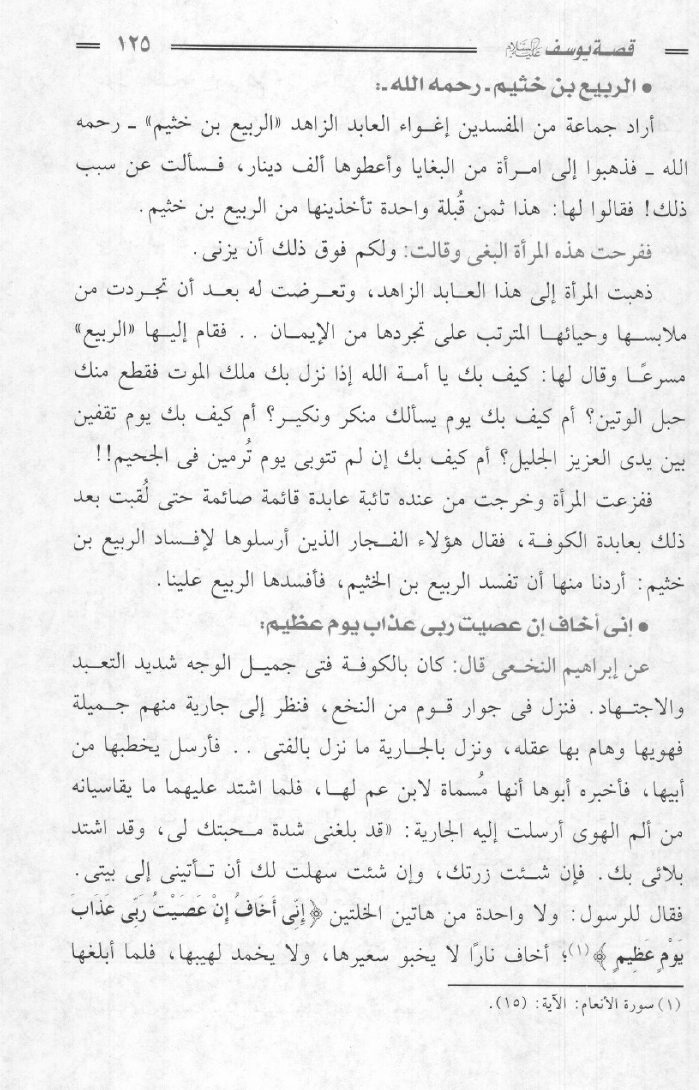 قصة يوسف عليه السلام ١٢٥
• الربيع بن خثيم ـ رحمه الله ـ:
أراد جماعة من المفسدين إغواء العابد الزاهد «الربيع بن خثيم» ـ رحمه
الله ـ فذهبوا إلى امرأة من البغايا وأعطوها ألف دينار، فسألت عن سبب
ذلك! فقالوا لها: هذا ثمن قُبلة واحدة تأخذينها من الربيع بن خثيم.
ففرحت هذه المرأة البغى وقالت: ولكم فوق ذلك أن يزنى.
ذهبت المرأة إلى هذا العابد الزاهد، وتعرضت له بعد أن تجردت من
ملابسها وحيائها المترتب على تجردها من الإيمان .. فقام إليها «الربيع»
مسرعًا وقال لها: كيف بك يا أمة الله إذا نزل بك ملك الموت فقطع منك
حبل الوتين؟ أم كيف بك يوم يسألك منكر ونكير؟ أم كيف بك يوم تقفين
بين يدى العزيز الجليل؟ أم كيف بك إن لم تتوبى يوم تُرمين فى الجحيم!!
ففزعت المرأة وخرجت من عنده تائبة عابدة قائمة صائمة حتى لُقبت بعد
ذلك بعابدة الكوفة، فقال هؤلاء الفجار الذين أرسلوها لإفساد الربيع بن
خثيم: أردنا منها أن تفسد الربيع بن الخثيم، فأفسدها الربيع علينا.
• إنى أخاف إن عصيت ربى عذاب يوم عظيم:
عن إبراهيم النخعى قال: كان بالكوفة فتى جميل الوجه شديد التعبد
والاجتهاد. فنزل فى جوار قوم من النخع، فنظر إلى جارية منهم جميلة
فهويها وهام بها عقله، ونزل بالجارية ما نزل بالفتى .. فأرسل يخطبها من
أبيها، فأخبره أبوها أنها مُسماة لابن عم لها، فلما اشتد عليهما ما يقاسيانه
من ألم الهوى أرسلت إليه الجارية: «قد بلغنى شدة محبتك لى، وقد اشتد
بلائى بك. فإن شئت زرتك، وإن شئت سهلت لك أن تأتينى إلى بيتى.
فقال للرسول: ولا واحدة من هاتين الخلتين ﴿إِنِّى أَخَافُ إِنْ عَصَيْتُ رَبِّى عَذَابَ
يَوْمٍ عَظِيمٍ﴾(١)؛ أخاف نارًا لا يخبو سعيرها، ولا يخمد لهيبها، فلما أبلغها
(١) سورة الأنعام: الآية: (١٥).